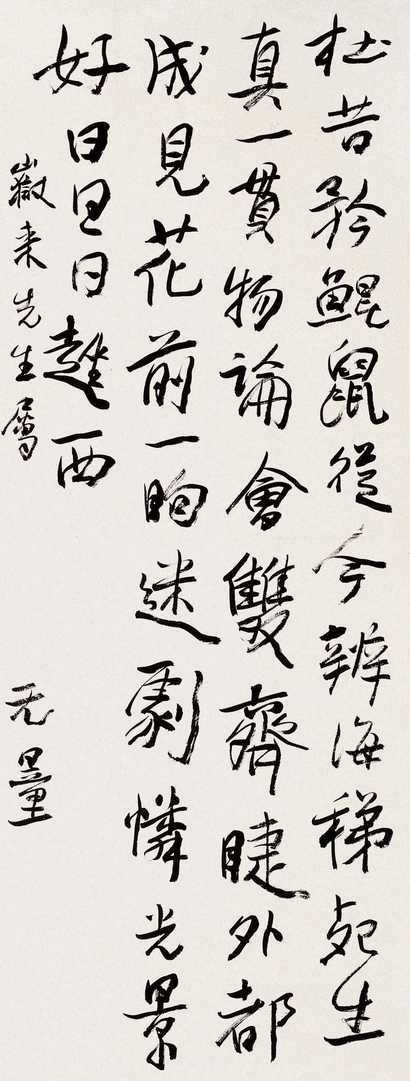 枉昔矜鯤鼠從今辨海稊死生
真一貫物論會雙齊睫外都
成見花前一晌迷劇憐光景
好日日趖西
嶽来先生属
无量